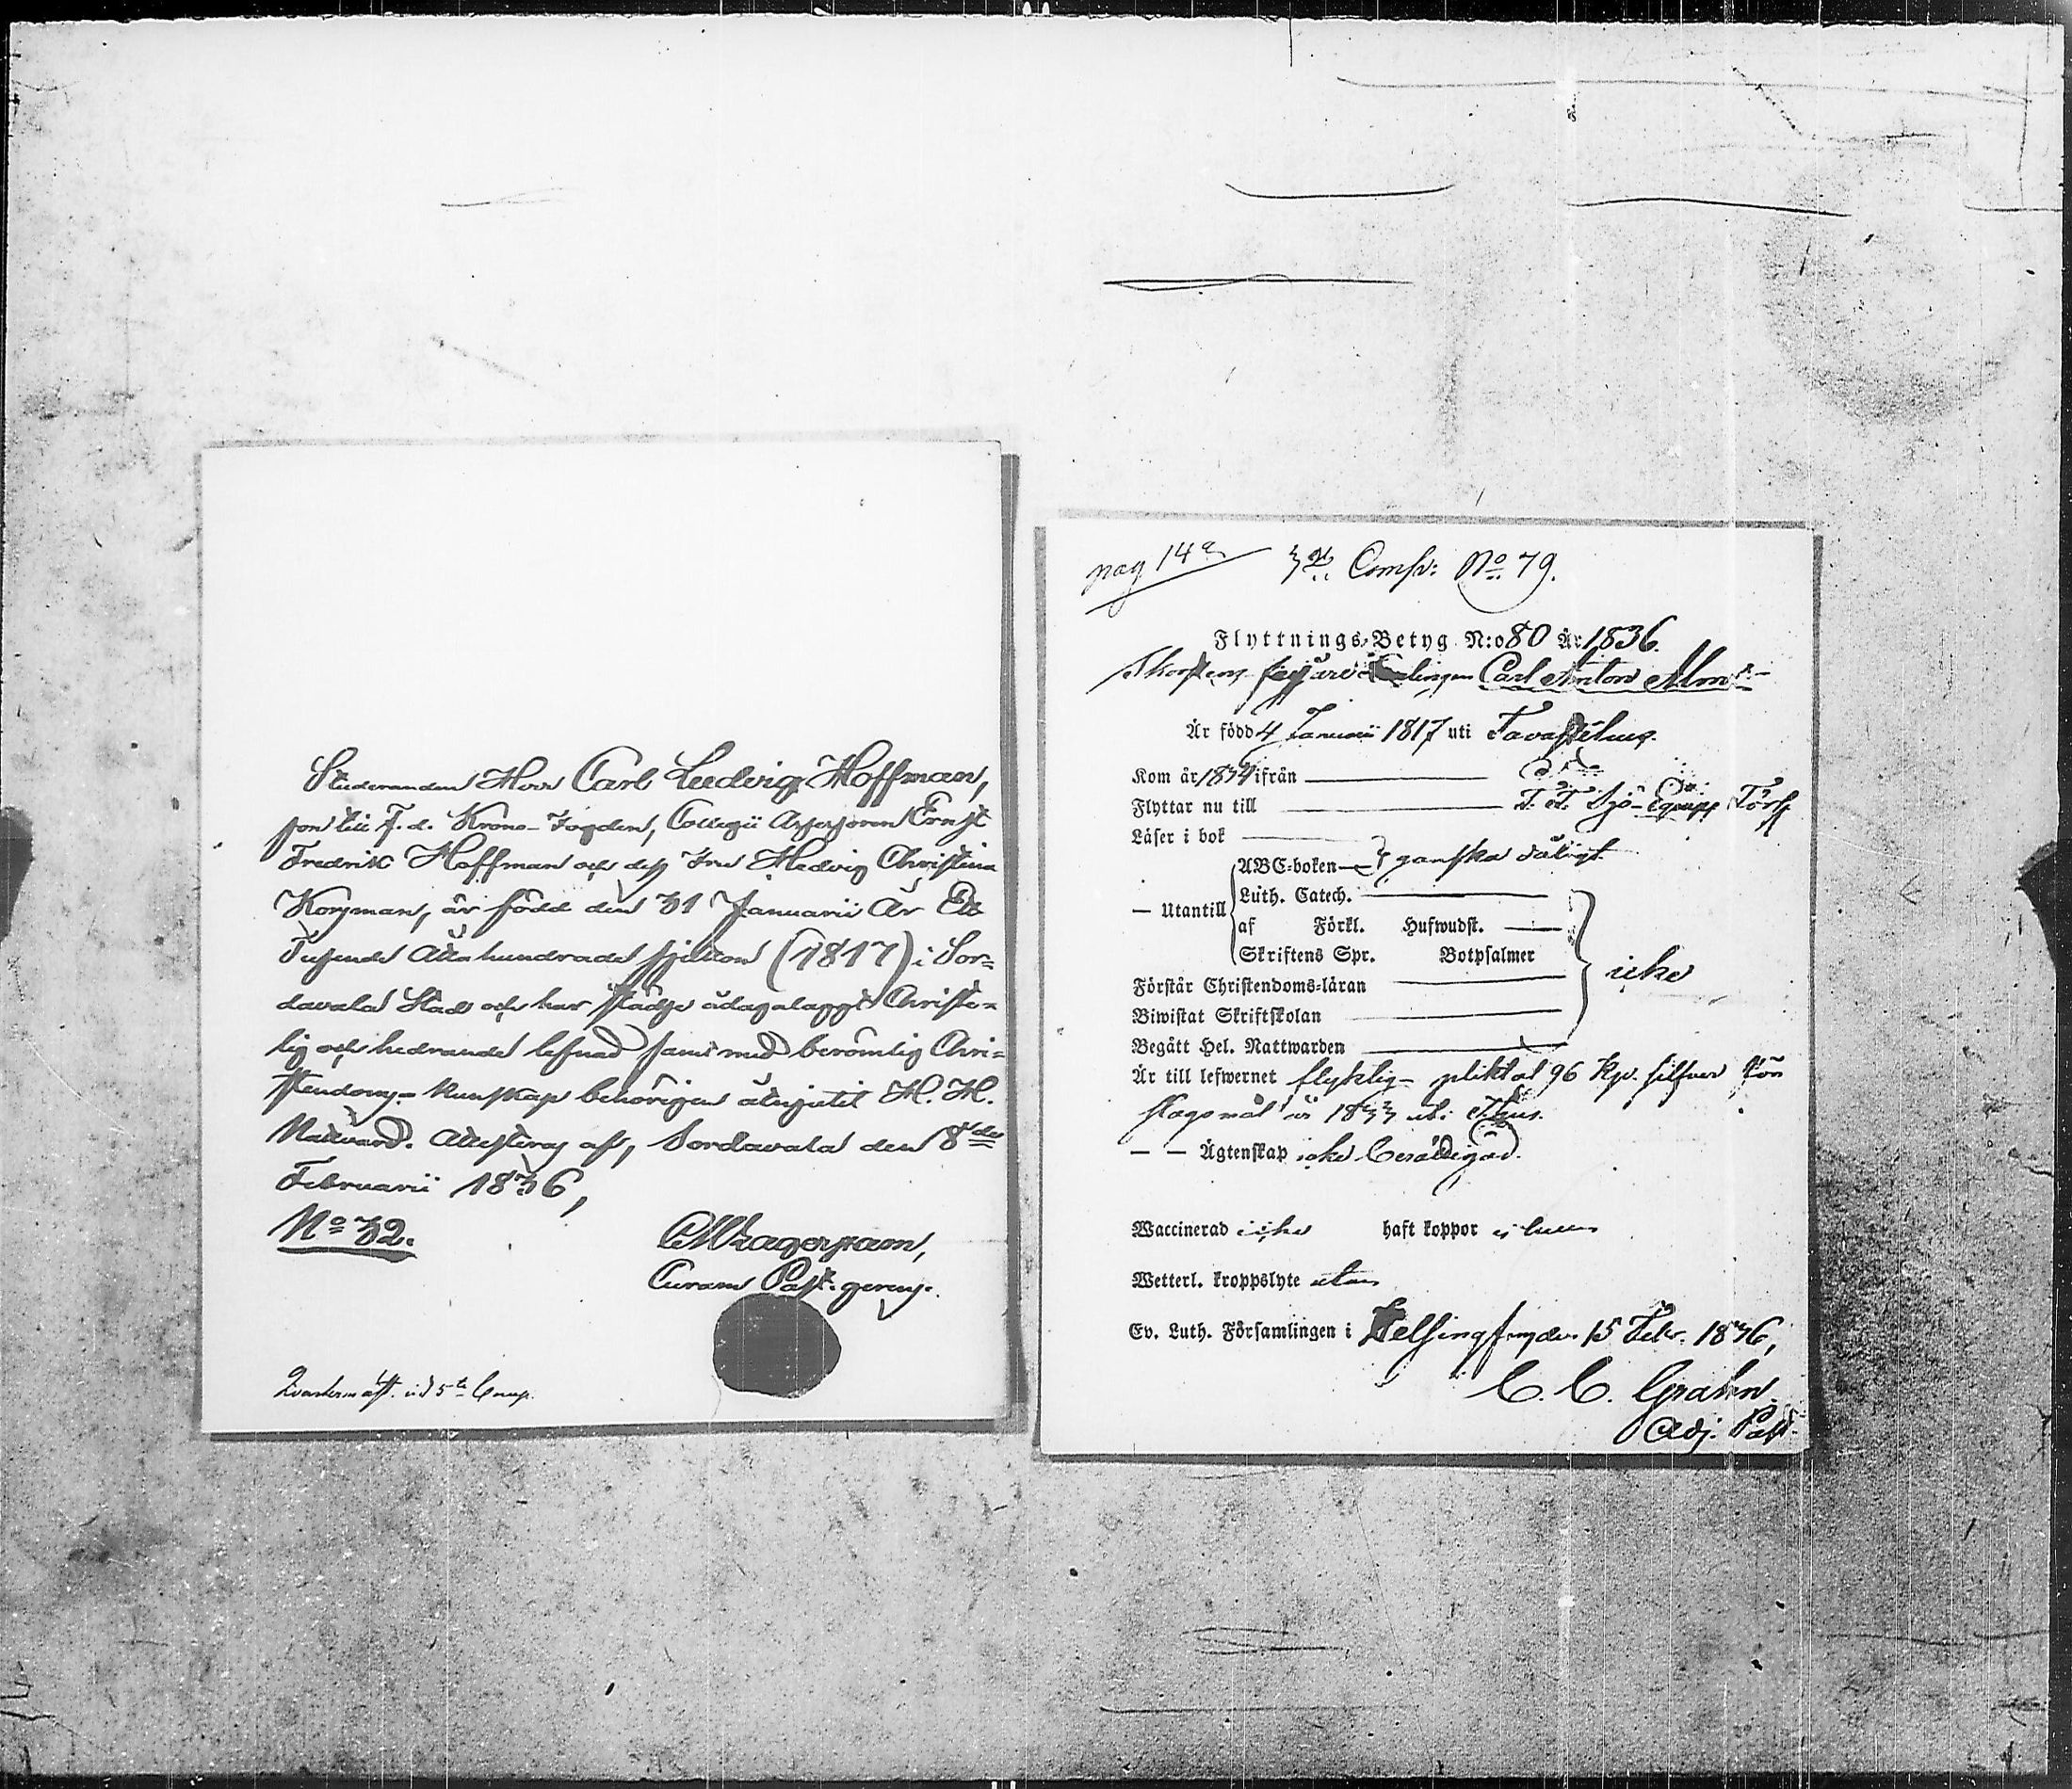 Studeranden Herr Carl Ludvig Hoffman,
son till F. d. Krono-Fogden, Collegii Assessoren Ernst
Fredrik Hoffman och dess Fru Hedvig Christina
Korsman, är född den 31 Januarii År Ett
Tusende Åttahundrade sjutton (1817) i Sor=
davala Stad och har städse ådagalaggt Christe=
lig och hedrande lefnad samt med berömlig Chri=
stendoms-kunskap behörigen åtnjutit H. H.
Nattvard. Attesteras af, Sordavala den 8de
Februarii 1836,
No 32.
Curam Past. gerens.
Qvarterm äst. vid 5te Comp.
pag 142
3de Comp: No 79.
Flyttnings-Betyg N:o 80 År 1836.
Skorstens fejare Lärlingen Carl Anton Alm
Är född 4 Januarii 1817 uti Tavastehus.
Kom år 1834 ifrån
Flyttar nu till F. F. Sjö-Equipp Förs
Läser i bok
ABC-boken ganska dåligt
— Utantill Luth. Catech.
af Förkl. Hufwudst.
Skriftens Spr. Botpsalmer
Förstår Christendoms-läran icke
Biwistat Skriftskolan
Begått Hel. Nattwarden
Är till lefwernet flyktig - pliktat 96 Kp. silfver för
slagsmål år 1833 uti T:hus.
— — Ägtenskap icke berättigad.
Waccinerad icke haft koppor
Wetterl. kroppslyte utan
Ev. Luth. Församlingen i Helsingfors den 15 Febr. 1836,
C. C. Grahn.
Adj. Past.